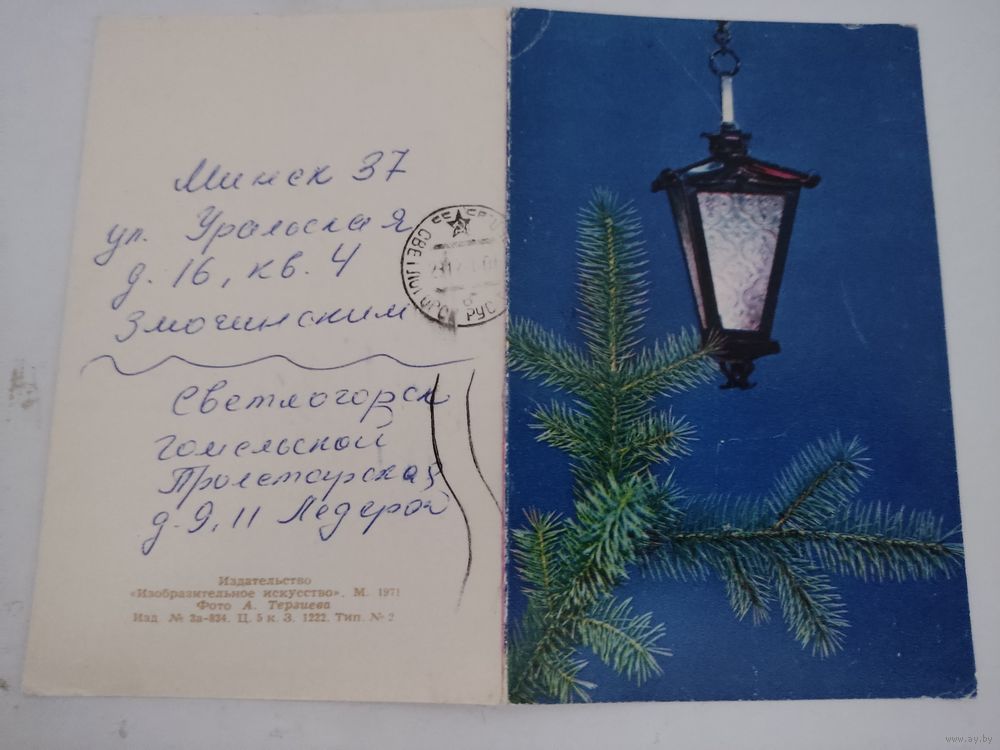 Минск 37
ул. Уральская
д. 16, кв. 4
Змочинским
Светлогорск
Гомельской
Пролетарская
д. 9, 11 Ледерой
СВЕТЛОГОРСК
РУС
Издательство
«Изобразительное искусство». М. 1971
Фото А. Терзиева
Изд. № 3а-834. Ц. 5 к. З. 1222. Тип. № 2
www.ay.by